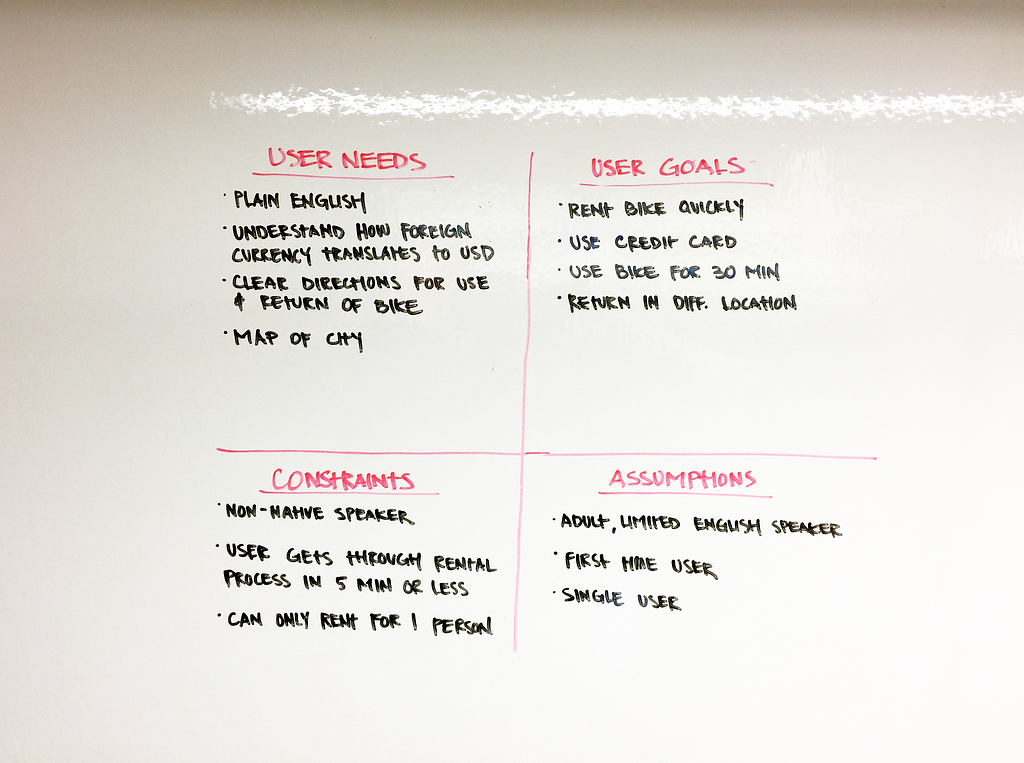 USER NEEDS
· PLAIN ENGLISH
· UNDERSTAND HOW FOREIGN
CURRENCY TRANSLATES TO USD
· CLEAR DIRECTIONS FOR USE
& RETURN OF BIKE
· MAP OF CITY
USER GOALS
· RENT BIKE QUICKLY
· USE CREDIT CARD
· USE BIKE FOR 30 MIN
· RETURN IN DIFF. LOCATION
CONSTRAINTS
· NON-NATIVE SPEAKER
· USER GETS THROUGH RENTAL
PROCESS IN 5 MIN OR LESS
· CAN ONLY RENT FOR 1 PERSON
ASSUMPTIONS
· ADULT, LIMITED ENGLISH SPEAKER
· FIRST TIME USER
· SINGLE USER